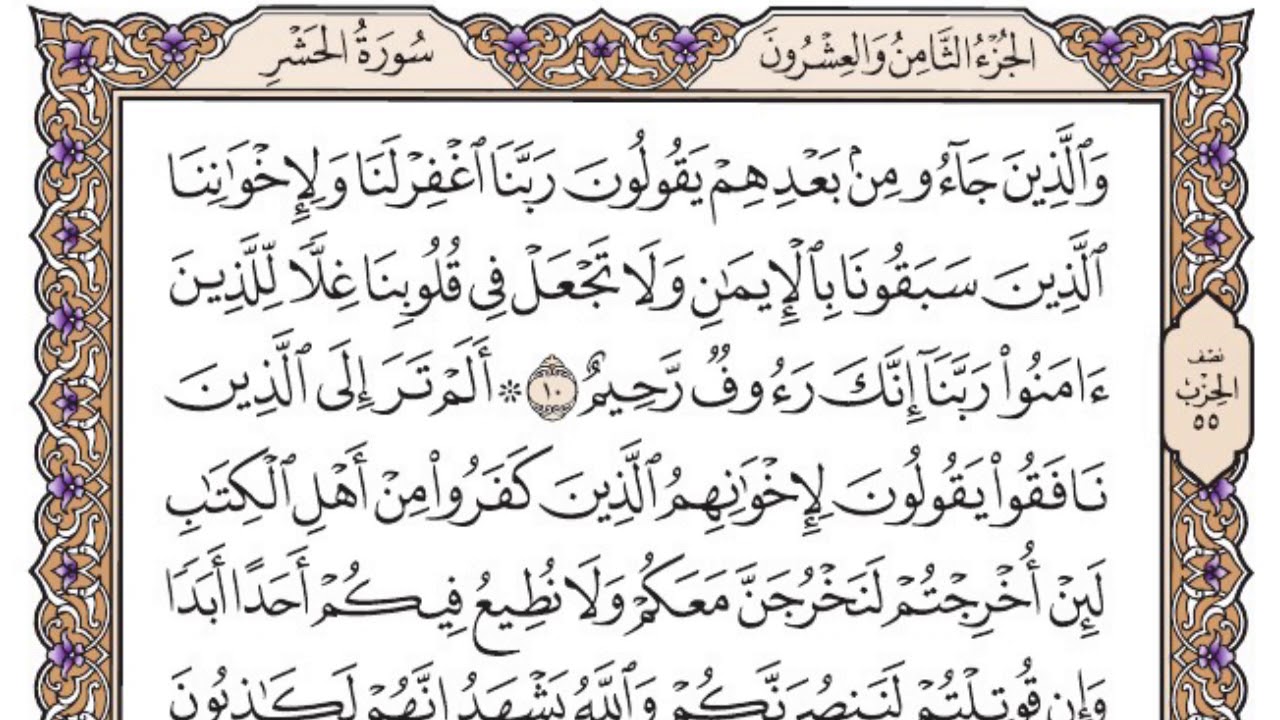 الجُزْءُ الثَّامِنُ وَالعِشْرُونَ
سُورَةُ الحَشْرِ
وَٱلَّذِينَ جَآءُو مِنۢ بَعْدِهِمْ يَقُولُونَ رَبَّنَا ٱغْفِرْ لَنَا وَلِإِخْوَٰنِنَا
ٱلَّذِينَ سَبَقُونَا بِٱلْإِيمَٰنِ وَلَا تَجْعَلْ فِى قُلُوبِنَا غِلًّا لِّلَّذِينَ
ءَامَنُوا۟ رَبَّنَآ إِنَّكَ رَءُوفٌ رَّحِيمٌ ١٠ ۞ أَلَمْ تَرَ إِلَى ٱلَّذِينَ
نَافَقُوا۟ يَقُولُونَ لِإِخْوَٰنِهِمُ ٱلَّذِينَ كَفَرُوا۟ مِنْ أَهْلِ ٱلْكِتَٰبِ
لَئِنْ أُخْرِجْتُمْ لَنَخْرُجَنَّ مَعَكُمْ وَلَا نُطِيعُ فِيكُمْ أَحَدًا أَبَدًا
وَإِن قُوتِلْتُمْ لَنَنصُرَنَّكُمْ وَٱللَّهُ يَشْهَدُ إِنَّهُمْ لَكَٰذِبُونَ
نِصْف
الحِزْب
٥٥